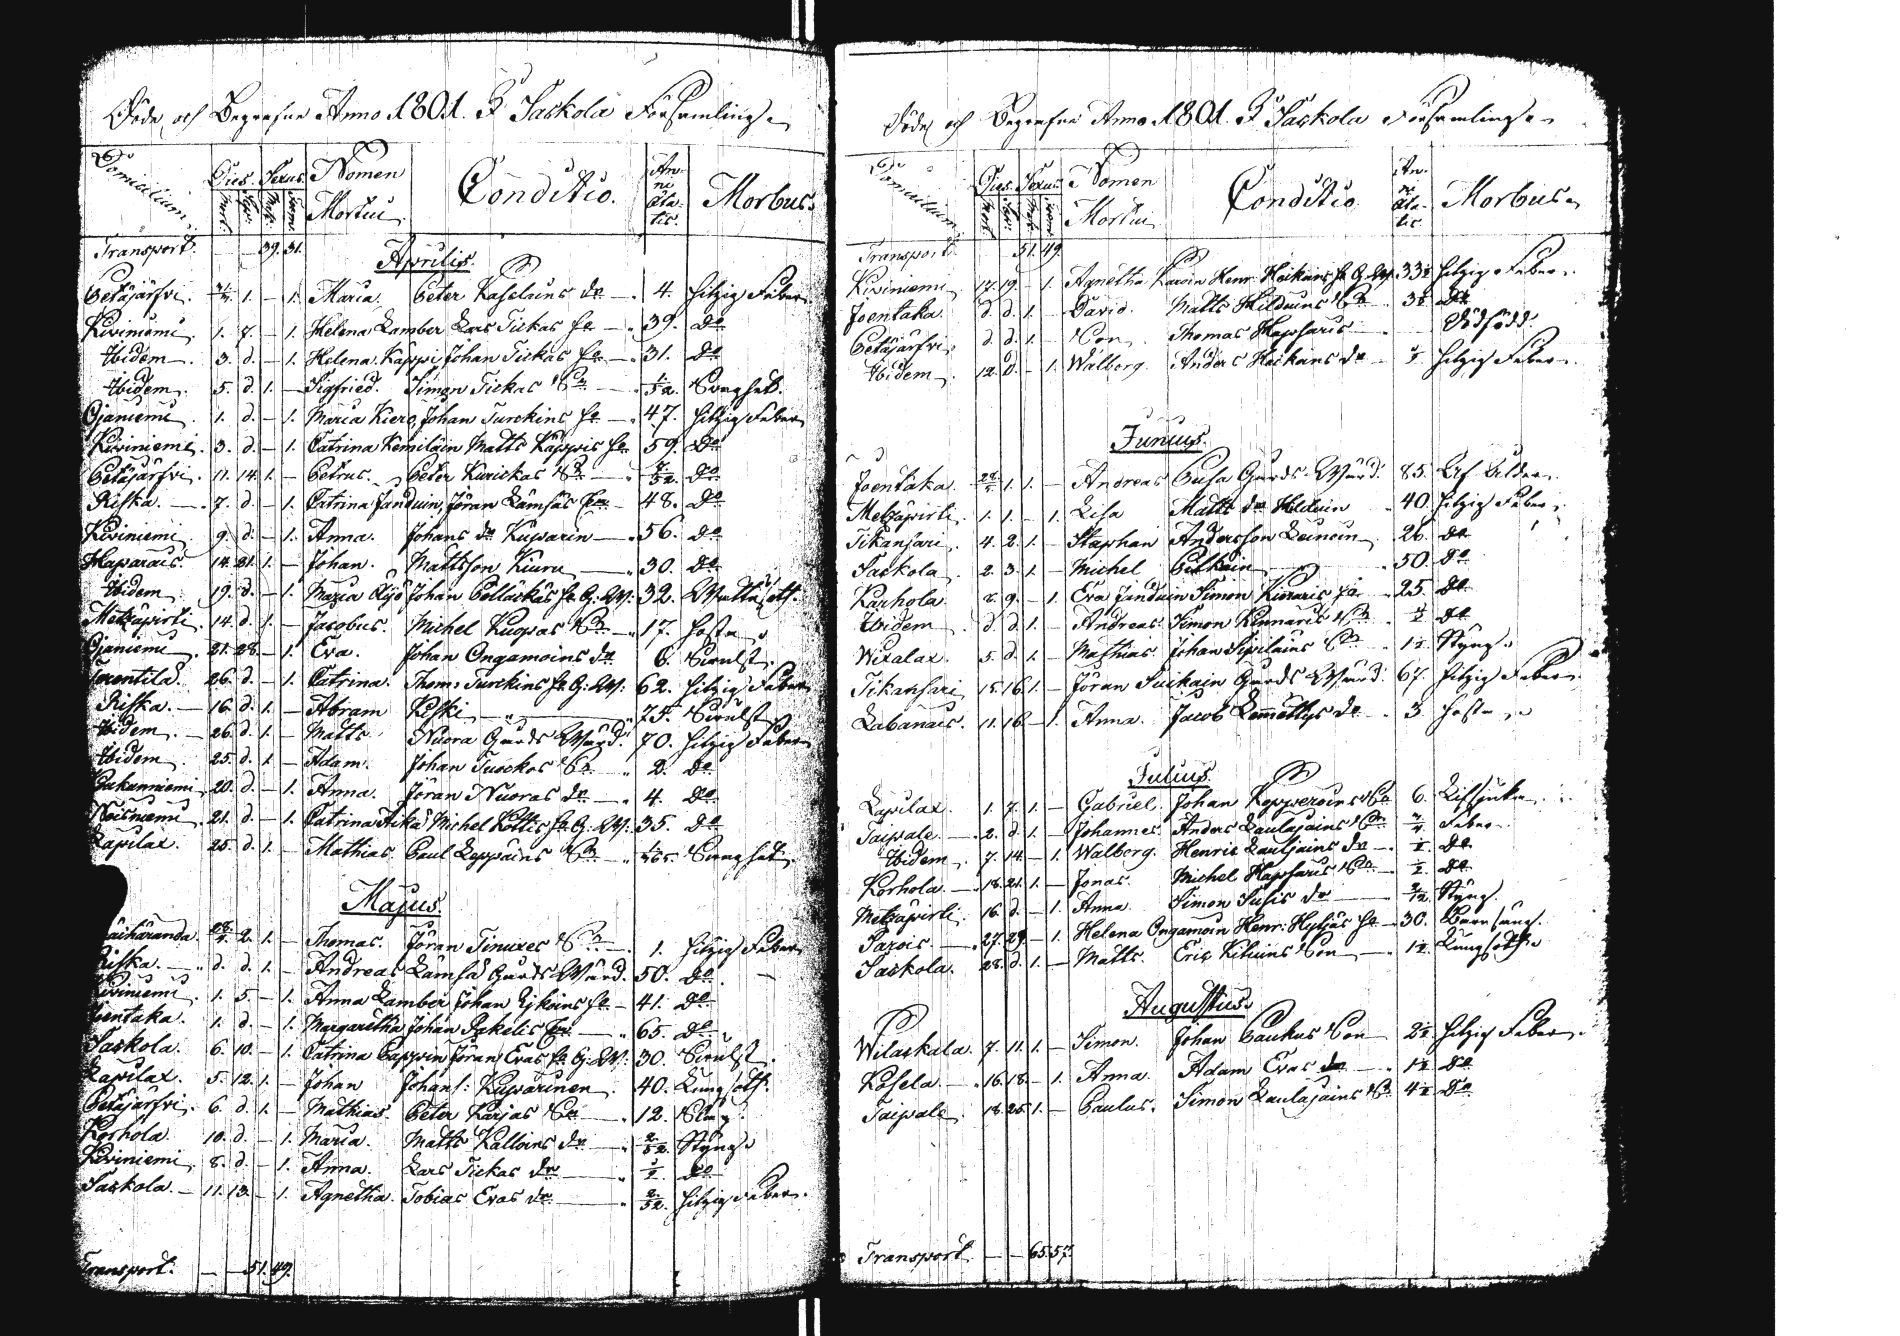 Döde och Begrafne Anno 1801. I Sackola Församling
Domicilium. Dies. Sexus. Nomen Mortui Conditio. Anni Ætatis. Morbus.
Transport. — — 39. 31.
Aprilis.
Petäjärfvi. 1. — 1. Maria. Peter Kaselains dr — 4. hitzig Feber
Kiviniemi. 1. 7. — 1. Helena Lamber Lars Tickas he — 39. do
Ibidem. 3. d. — 1. Helena Käppi Johan Tickas he — 31. do
Ibidem. 5. d. 1. — Sigfried. Simon Tickas Sn — 1/52.
Ojaniemi. 1. d. — 1. Maria Kiero, Johan Turckins he — 47. hitzig Feber
Kiviniemi. 3. d. — 1. Catrina Kemiläin Matts Käppis he 59. do
Petäjärfvi. 11. 14. 1. — Petrus. Peter Kurickas Sn — do
Riska. — 7. d. — 1. Catrina Janduin, Jöran Lämsäs 48. do
Kiviniemi 9. d. — 1. Anna. Johans dr Kuparin — 56. do
Haparais. 14. 21. 1. — Johan. Mattsson Kiuru — 30. do
Ibidem. 19. d. — 1. Maria Johan he G: W: 32.
Metzäpirti. 14. d. 1. — Jacobus. Michel Kuopas Sn — 17. hosta
Ojaniemi. 21. 28. — 1. Eva. Johan Ongamoins dr 6. Svulst.
26. d. — 1. Catrina. Thoms Turckins he G: W: 62. hitzig Feber
Riska. — 16. d. 1. — Abram Keski — 75. Svulst
Ibidem. — 26. d. 1. — Matts Nuora Gards Wärd. 70. hitzig Feber
Ibidem 25. d. 1. — Adam. Johan Tuockos Sn 2. do
20. d. — 1. Anna. Jöran Nuoras dr — 4. do
Noisniemi 21. d. — 1. Catrina Michel Kottis he G: W: 35. do
Lapilax. 25. d. 1. — Mathias Paul Leppäins Sn
Majus.
2. 1. — Thomas. Jöran Tinures Sn — 1. hitzig Feber
Riska. — d. d. 1. — Andreas Lämsä Gards Wärd. 50. do
Kiviniemi 1. 5. — 1. Anna Lamber Johan he — 41. do
Joentaka. 1. d. — 1. Margaretha Johan Pakelis — 65. do
Sackola. 6. 10. — 1. Catrina Pappin Jöran Evas he G: W: 30. Svulst
Lapilax. 5. 12. 1. — Johan Johans: Kuparinen 40. Lungsott.
Petäjärfvi. 6. d. 1. — Mathias Peter Karjas Sn — 12.
Korhola 10. d. — 1. Maria. Matts Kalloins dr — 2/52. Styng
Kiviniemi 8. d. — 1. Anna Lars Tickas dr — 1/2 do
Sackola — 11. 13. — 1. Agnetha Tobias Evas dr — 2/52. hitzig Feber.
Transport. — — 51. 49.
Döde och Begrafne Anno 1801. I Sackola Församling
Domicilium. Dies. Sexus. Nomen Mortui Conditio Anni Ætatis Morbus
Transport 51. 49.
Kiviniemi 17. 19. — 1. Agnetha Karoin Henr. Heikains he G. W. 33 1/2 hitzig Feber.
Joentaka. d. d. 1. — David. Matts Hilduins Sn 3 1/2 do
Petäjärfvi. d. d. 1. — Son Thomas Hapsaris — Dödfödd.
Ibidem 12. d. — 1. Walborg. Anders Heikains dr — hitzig Feber
Junius.
Joentaka 1. 1. — Andreas Gards Wärd. 85. Af Ålder
Metzäpirti 1. 1. — 1. Lisa Matts dr Hilduin 40. hitzig Feber
Tikansari 4. 2. 1. — Staphan Andersson Leinoin 26. do
Sackola. 2. 3. 1. — Michel Pelkoin 50. do
Karhola 8. 9. — 1. Eva Janduin Simon Kinnaris he 25 do
Ibidem d. d. 1. — Andreas Simon Kinnaris Sn do
Wexalax. 5. d. 1. — Mathias Johan Sipilains Sn 1 1/2 Styng
Tikansari 15. 16. 1. — Jöran Suikain Gards Wärd. 67. Hitzig Feber
Labanais. 11. 16. — 1. Anna. Jacob Lemettys dr 3 hosta
Julius.
Lapilax. 1. 7. 1. — Gabriel. Johan Kopperoins Sn 6.
Taipale. — 2. d. 1. — Johannes. Anders Laulajains Sn Feber
Ibidem 7. 14. — 1. Walborg. Henric Laulajains dr — 1/2 do
Korhola. — 18. 21. 1. — Jonas. Michel Hapsaris Sn — 1/2 do
Metzäpirti. 16. d. — 1. Anna. Simon Susis dr — Styng.
Parois. — 27. 29. — 1. Helena Ongamoin Henr. Hyljäs he — 30. Barnsäng.
Sackola. 28. d. 1. — Matts. Eric Kiluins Son — 1 1/2 Lungsott
Augustus.
Wilackala. 7. 11. 1. — Simon. Johan Paukus Son — 2 1/2 hitzig Feber.
Kosela. — 16. 18. — 1. Anna. Adam Evas dr — 1 1/2 do
Taipale. 18. 25. 1. — Paulus. Simon Laulajains Sn 4 1/2 do
Transport — — 65. 57.